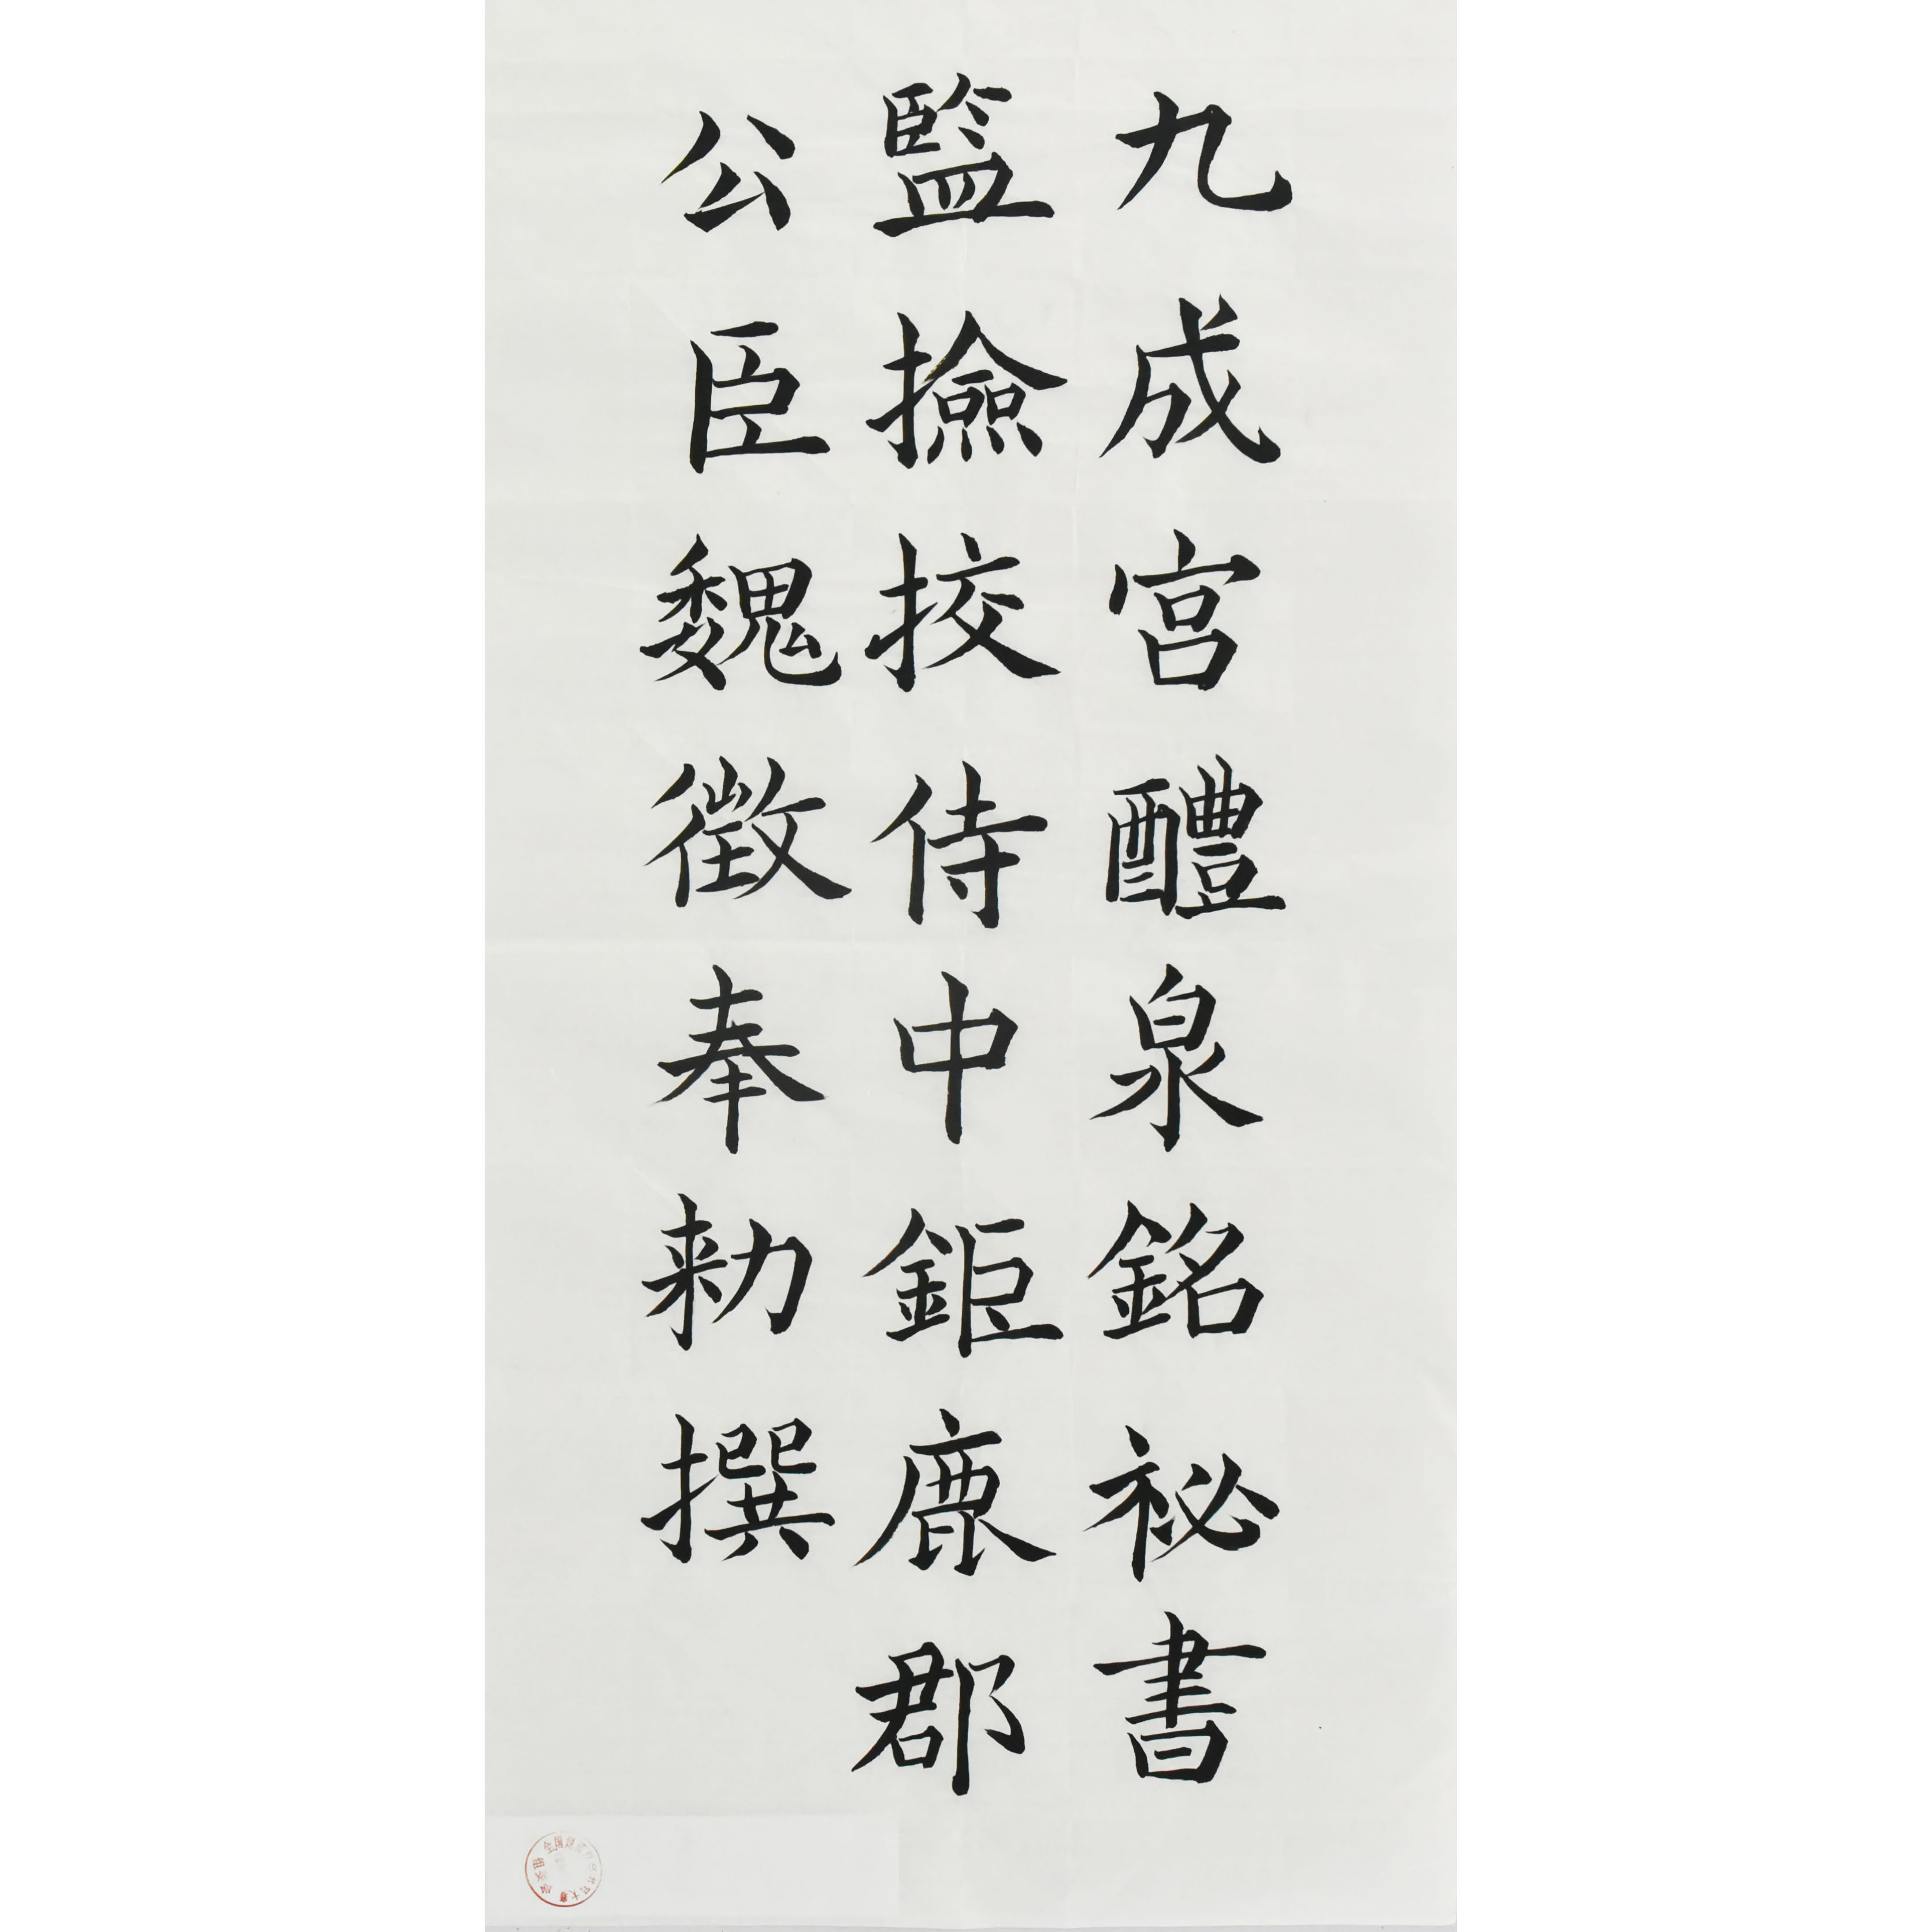 九成宮醴泉銘祕書
監撿挍侍中鉅鹿郡
公臣魏徵奉勑撰